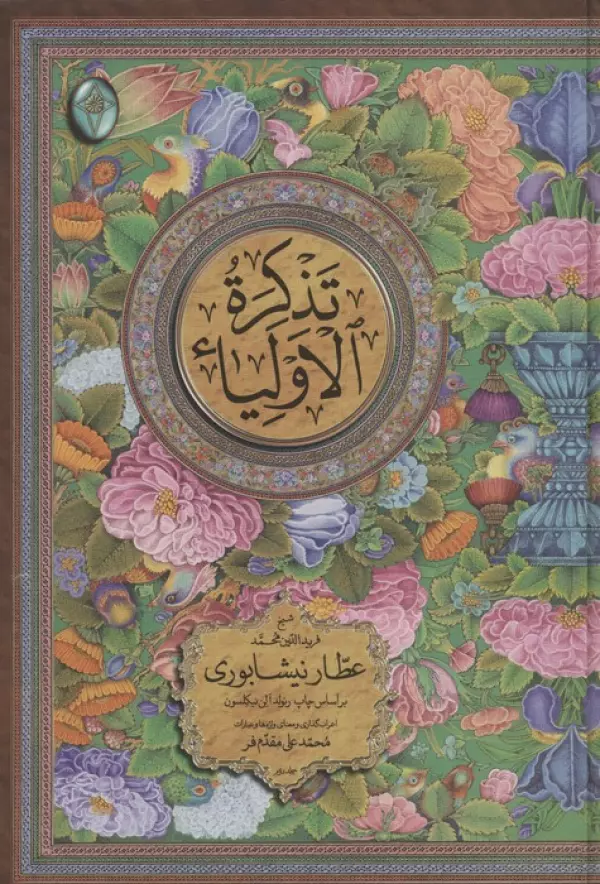 تَذْکِرَةُ
الْاَوْلِیاء
شیخ
فریدالدّین محمّد
عطّار نیشابوری
براساس چاپ رینولد آلن نیکلسون
اعراب‌گذاری و معنای واژه‌ها و عبارات
مُحمّد علی مقدّم فر
جلد دوم